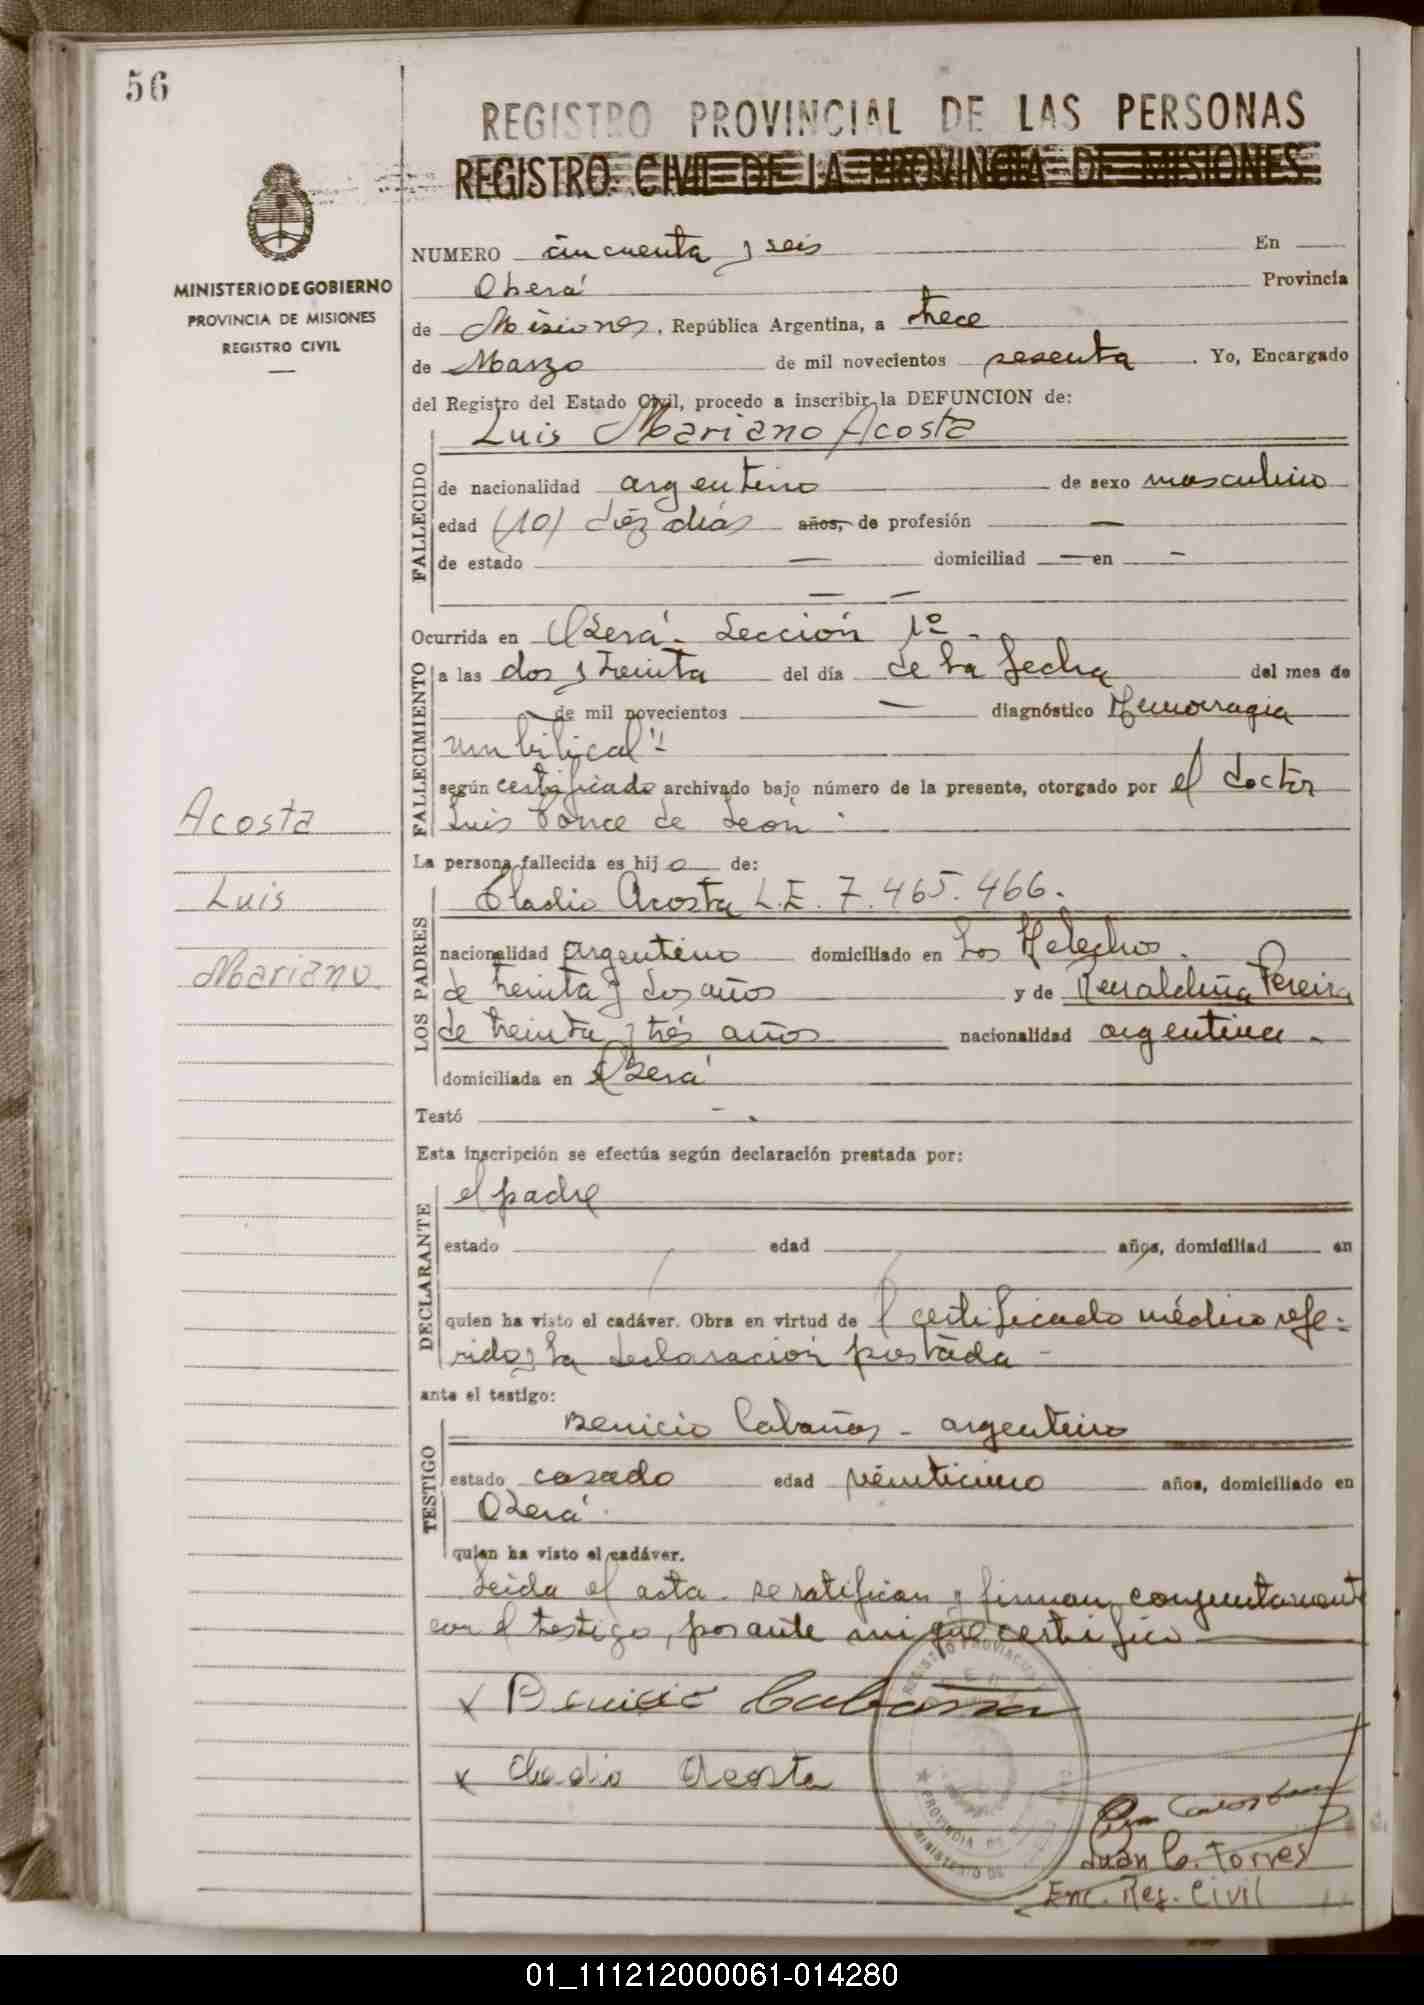 56
REGISTRO PROVINCIAL DE LAS PERSONAS
REGISTRO CIVIL DE LA PROVINCIA DE MISIONES
MINISTERIO DE GOBIERNO
PROVINCIA DE MISIONES
REGISTRO CIVIL
NUMERO cincuenta y seis En
Oberá Provincia
de Misiones, República Argentina, a trece
de Marzo de mil novecientos sesenta. Yo, Encargado
del Registro del Estado Civil, procedo a inscribir la DEFUNCION de:
Luis Mariano Acosta
FALLECIDO
de nacionalidad argentino de sexo masculino
edad (10) diéz días años, de profesión —
de estado — domiciliad — en —
— —
Ocurrida en Oberá - Sección 1º -
FALLECIMIENTO
a las dos y treinta del día de la fecha del mes de
— de mil novecientos — diagnóstico Hemorragia
umbilical"-
según certificado archivado bajo número de la presente, otorgado por el doctor
Luis Ponce de León -
Acosta
Luis
Mariano
La persona fallecida es hijo de:
LOS PADRES
Eladio Acosta L.E. 7.465.466.
nacionalidad argentino domiciliado en Los Helechos.
de treinta y dos años y de Pereira
de treinta y trés años nacionalidad argentina -
domiciliada en Oberá
Testó - -
Esta inscripción se efectúa según declaración prestada por:
DECLARANTE
el padre
estado edad años, domiciliad en
quien ha visto el cadáver. Obra en virtud de l certificado médico refe-
rido y la declaración prestada -
ante el testigo:
TESTIGO
Benicio Cabañas - argentino
estado casado edad veinticinco años, domiciliado en
Oberá.
quien ha visto el cadáver.
Leida el acta - se ratifican y firman conjuntament
con el testigo, por ante mi que certifico
x Benicio Cabaña
x Eladio Acosta
REGISTRO PROVINCIAL
PROVINCIA DE
MINISTERIO DE
Juan C. Torres
Enc. Reg. Civil
01_111212000061-014280